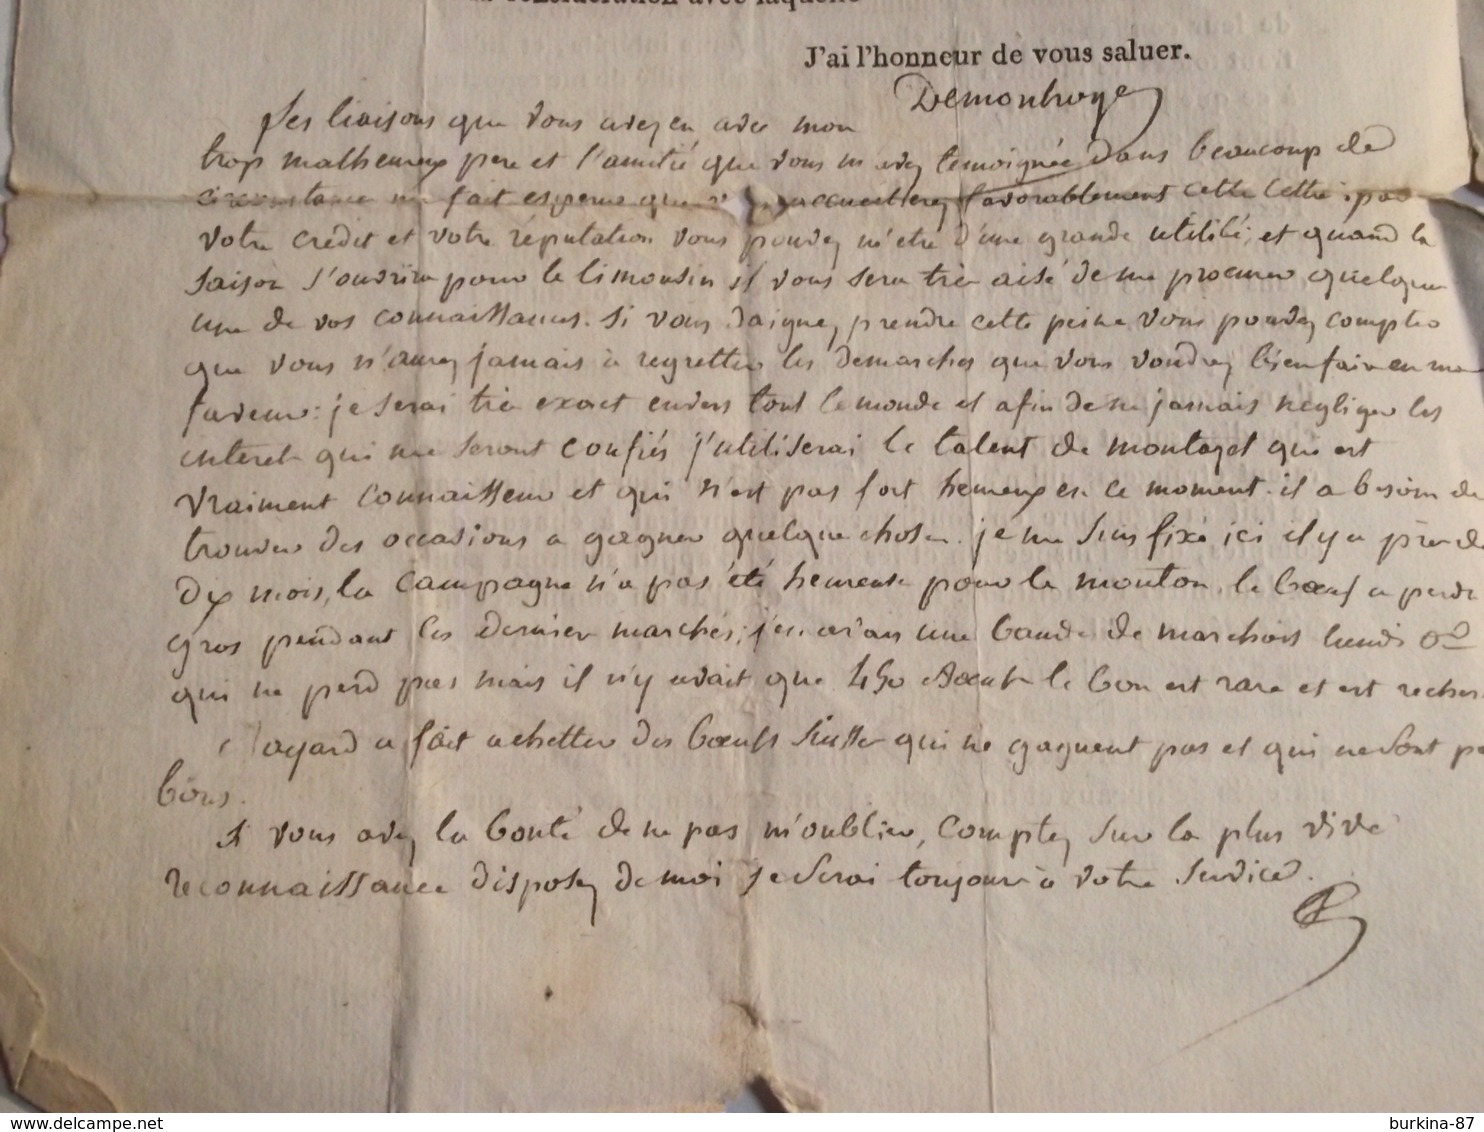 considération avec laquelle
J'ai l'honneur de vous saluer.
Demontroye
Les liaisons que vous avez eu avec mon
trop malheureux pere et l'amitié que vous m'avez temoignée dans beaucoup de
circonstance me fait esperer que accueillerez favorablement cette lettre: par
votre crédit et votre réputation vous pouvez m'etre d'une grande utilité, et quand la
saison s'ouvrira pour le limousin il vous sera très aisé de me procurer quelque
une de vos connaissances. Si vous daignez prendre cette peine vous pouvez compter
que vous n'aurez jamais à regretter les demarches que vous voudrez bien faire en ma
faveur: je serai très exact envers tout le monde et afin de ne jamais negliger les
interets qui me seront confiés j'utiliserai le talent de montazet qui est
vraiment connaisseur et qui n'est pas fort heureux en ce moment. il a besoin de
trouver des occasions a gagner quelque chose. je me suis fixé ici il y a près de
dix mois, la campagne n'a pas été heureuse pour le mouton, le bœuf a perdu
gros pendant les dernier marchés; j'en avais une bande de marchois lundi
qui ne perd pas mais il n'y avait que 450 Bœufs le bon est rare et est recher
ayard a fait achetter des bœufs suisse qui ne gagnent pas et qui ne sont pa
bons.
si vous avez la bonté de ne pas m'oublier, comptez sur la plus vive
reconnaissance disposez de moi je serai toujours à votre service.
burkina-87